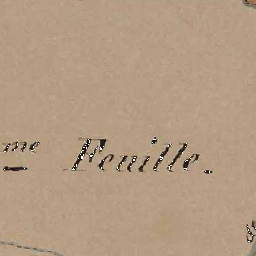 me Feuille.